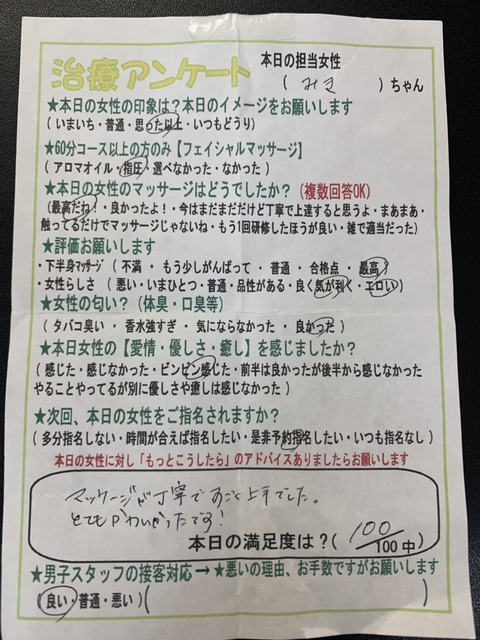 本日の担当女性
治療アンケート ( みき )ちゃん
★本日の女性の印象は?本日のイメージをお願いします
( いまいち・普通・思った以上・いつもどうり )
★60分コース以上の方のみ【フェイシャルマッサージ】
( アロマオイル・指圧・選べなかった・なかった )
★本日の女性のマッサージはどうでしたか? (複数回答OK)
(最高だね!・良かったよ!・今はまだまだだけど丁寧で上達すると思うよ・まあまあ・
触ってるだけでマッサージじゃないね・もう1回研修したほうが良い・雑で適当だった)
★評価お願いします
・下半身マッサージ ( 不満 ・ もう少しがんばって ・ 普通 ・ 合格点 ・ 最高 )
・女性らしさ ( 悪い・いまひとつ・普通・品性がある・良く気が利く・エロい )
★女性の匂い? (体臭・口臭等)
( タバコ臭い ・ 香水強すぎ ・ 気にならなかった ・ 良かった )
★本日女性の【愛情・優しさ・癒し】を感じましたか?
( 感じた・感じなかった・ビンビン感じた・前半は良かったが後半から感じなかった
やることやってるが別に優しさや癒しは感じなかった )
★次回、本日の女性をご指名されますか?
( 多分指名しない・時間が合えば指名したい・是非予約指名したい・いつも指名なし )
本日の女性に対し「もっとこうしたら」のアドバイスありましたらお願いします
マッサージが丁寧ですごく上手でした。
とてもかわいかったです!
本日の満足度は?( 100/100中)
★男子スタッフの接客対応→★悪いの理由、お手数ですがお願いします
(良い・普通・悪い) ( )